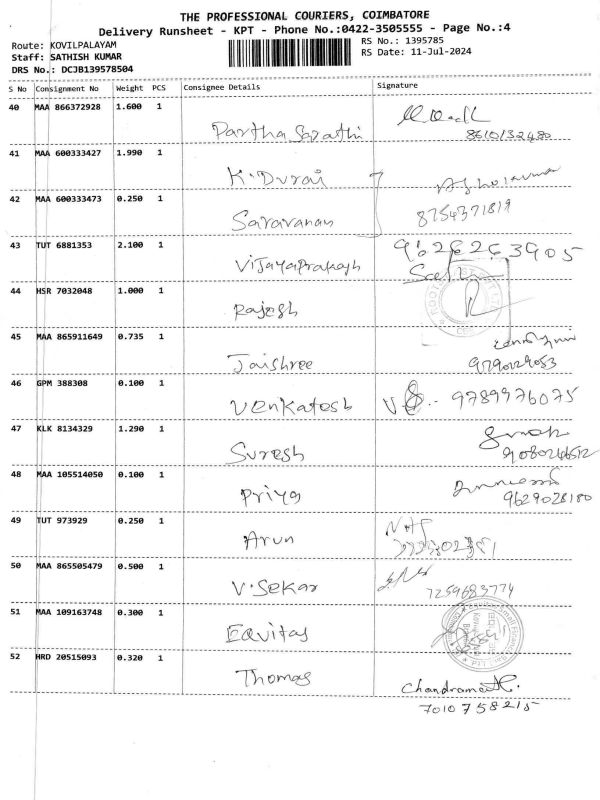 THE PROFESSIONAL COURIERS, COIMBATORE
Delivery Runsheet - KPT - Phone No.:0422-3505555 - Page No.:4
Route: KOVILPALAYAM
RS No.: 1395785
Staff: SATHISH KUMAR
RS Date: 11-Jul-2024
DRS No.: DCJB139578504
S No Consignment No Weight PCS Consignee Details Signature
40 MAA 866372928 1.600 1
Partha Sarathi 8610132480
41 MAA 600333427 1.990 1
K.Durai
42 MAA 600333473 0.250 1
Saravanan 8754371819
43 TUT 6881353 2.100 1 9626263905
Vijayaprakash
44 HSR 7032048 1.000 1
Rajesh
45 MAA 865911649 0.735 1
Jaishree 9790029053
46 GPM 388308 0.100 1
Venkatesh 9789976075
47 KLK 8134329 1.290 1
Suresh 9080246512
48 MAA 105514050 0.100 1
Priya 9629028180
49 TUT 973929 0.250 1
Arun
50 MAA 865505479 0.500 1
V.Sekar 7259683774
51 MAA 109163748 0.300 1
Equitas
52 HRD 20515093 0.320 1
Thomas
7010758215